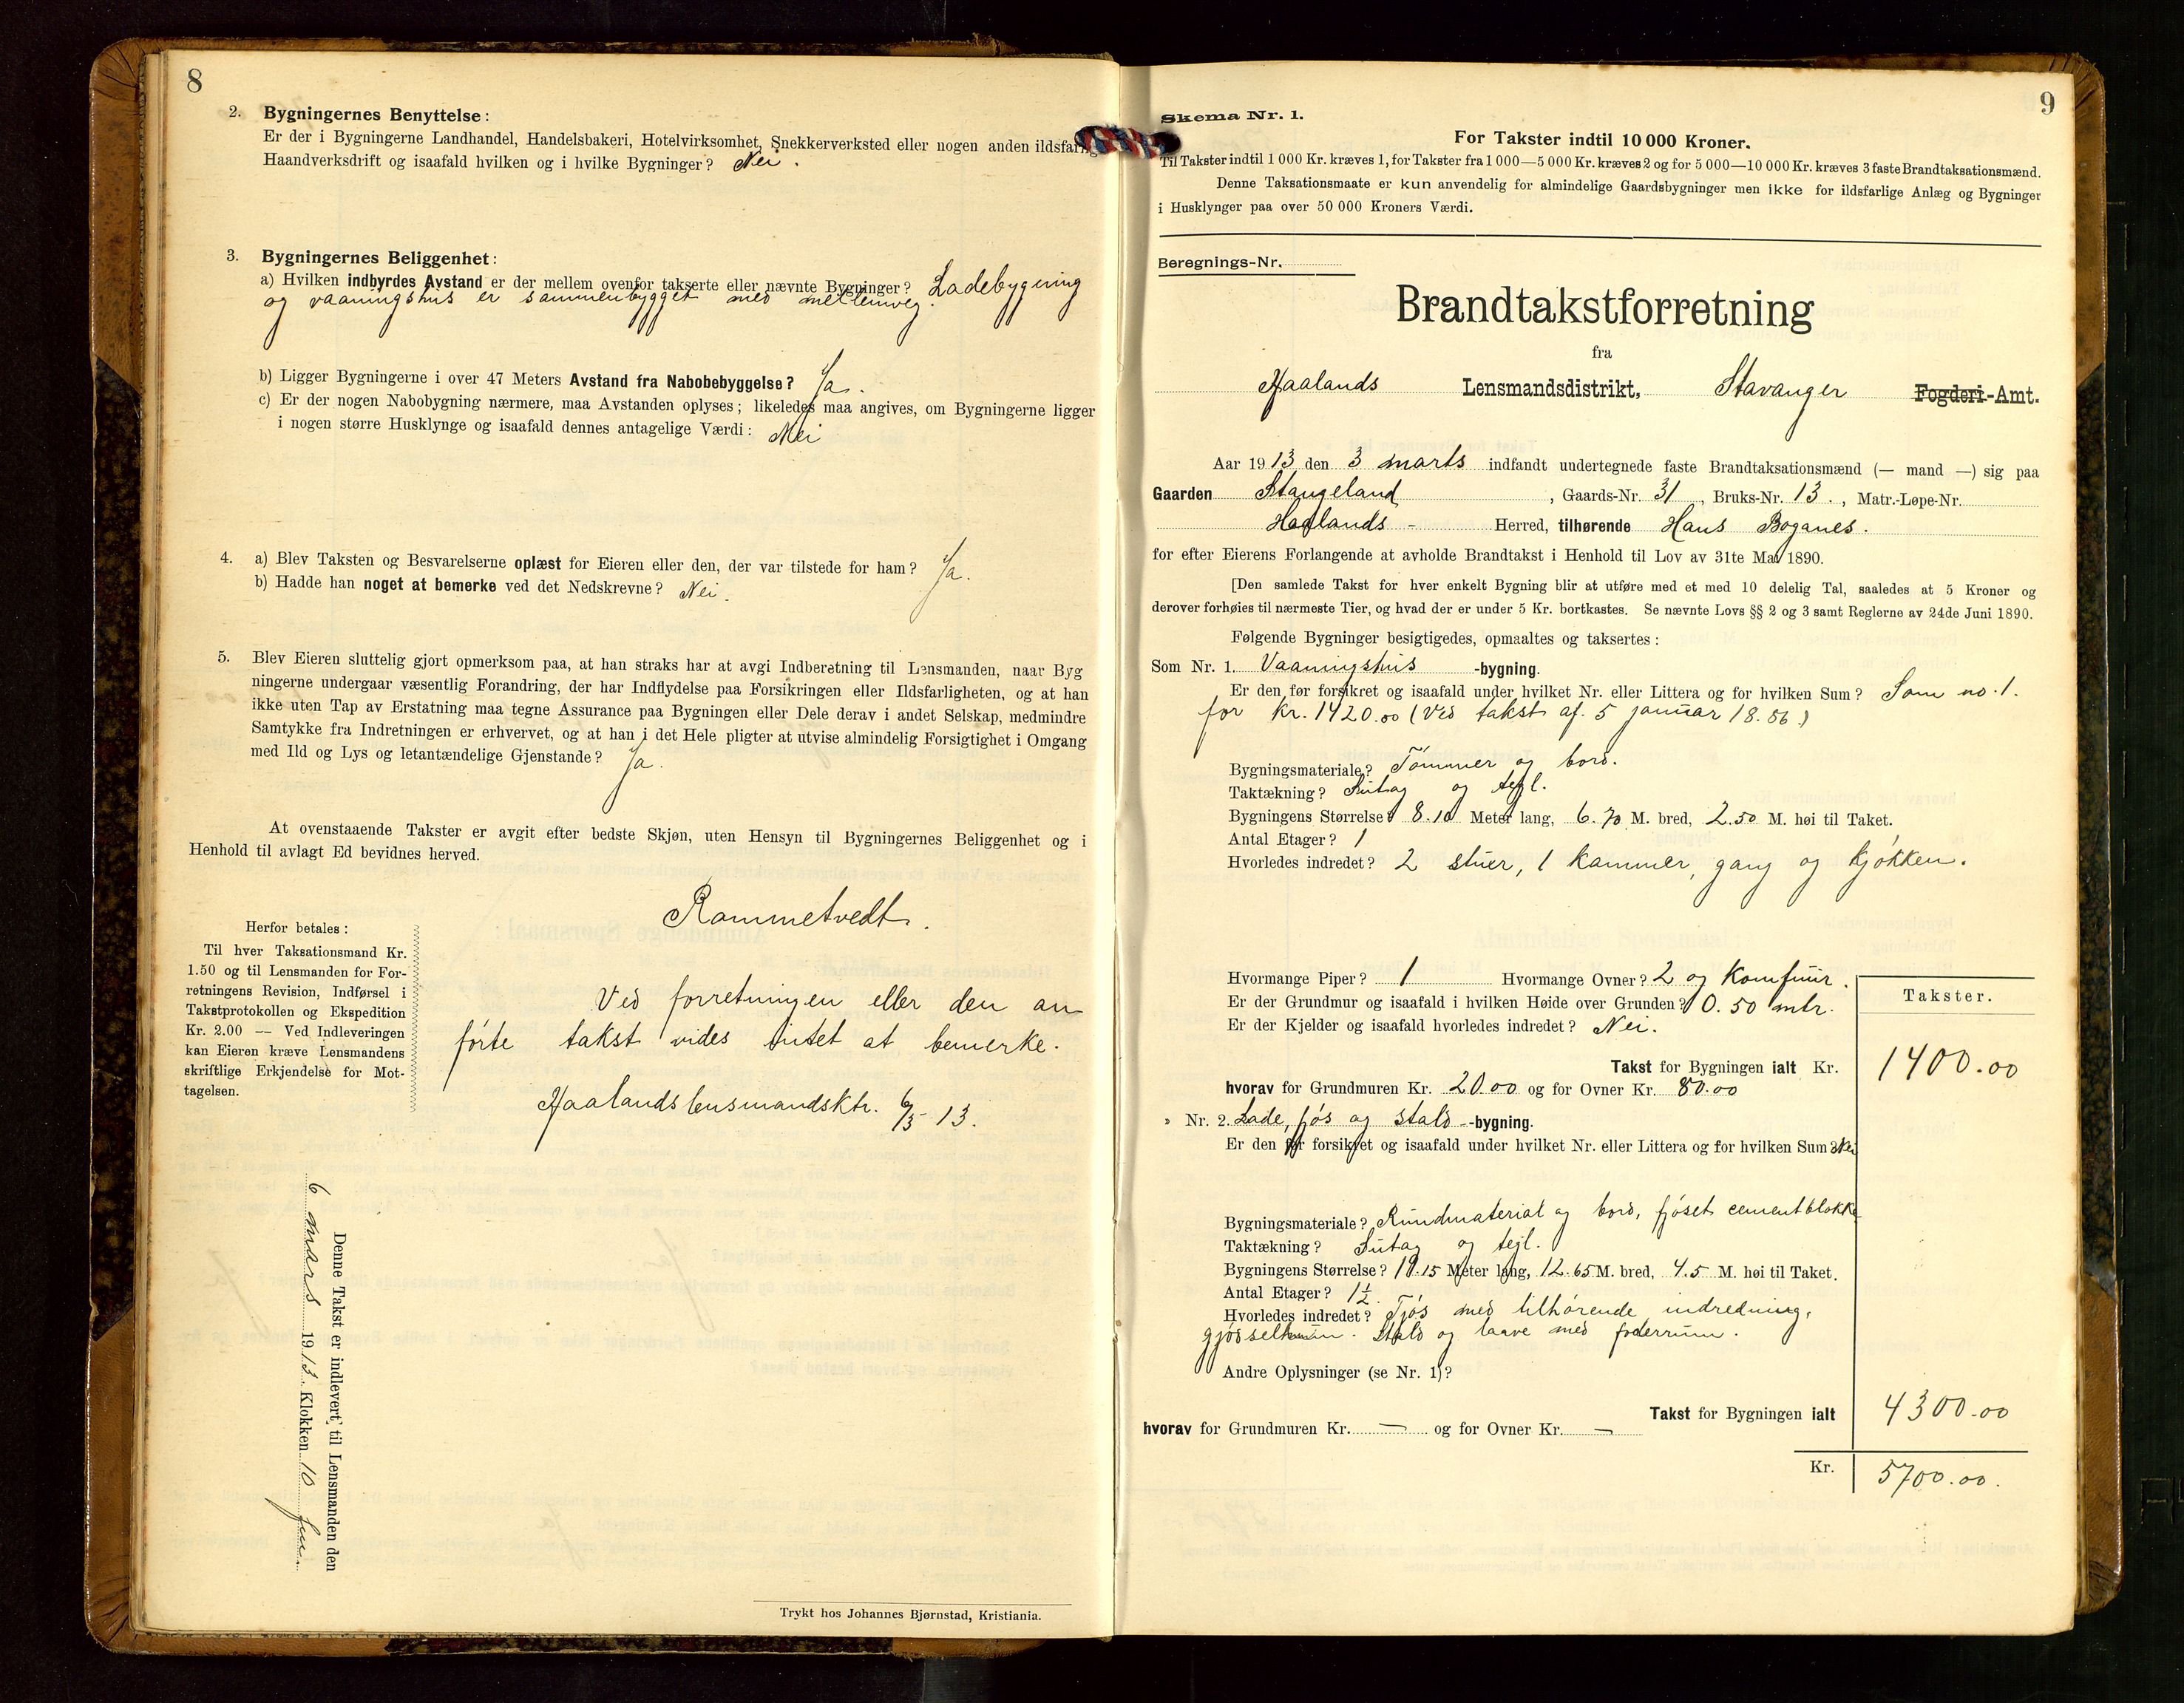 8
2. Bygningernes Benyttelse:
Er der i Bygningerne Landhandel, Handelsbakeri, Hotelvirksomhet, Snekkerverksted eller nogen anden ildsfarlig
Haandverksdrift og isaafald hvilken og i hvilke Bygninger? Nei.
3. Bygningernes Beliggenhet:
a) Hvilken indbyrdes Avstand er der mellem ovenfor takserte eller nævnte Bygninger? Ladebygning
og vaaningshus er sammenbygget med mellemveg.
b) Ligger Bygningerne i over 47 Meters Avstand fra Nabobebyggelse? Ja.
c) Er der nogen Nabobygning nærmere, maa Avstanden oplyses; likeledes maa angives, om Bygningerne ligger
i nogen større Husklynge og isaafald dennes antagelige Værdi: Nei
4. a) Blev Taksten og Besvarelserne oplæst for Eieren eller den, der var tilstede for ham? Ja.
b) Hadde han noget at bemerke ved det Nedskrevne? Nei.
5. Blev Eieren sluttelig gjort opmerksom paa, at han straks har at avgi Indberetning til Lensmanden, naar Byg
ningerne undergaar væsentlig Forandring, der har Indflydelse paa Forsikringen eller Ildsfarligheten, og at han
ikke uten Tap av Erstatning maa tegne Assurance paa Bygningen eller Dele derav i andet Selskap, medmindre
Samtykke fra Indretningen er erhvervet, og at han i det Hele pligter at utvise almindelig Forsigtighet i Omgang
med Ild og Lys og letantændelige Gjenstande? Ja.
At ovenstaaende Takster er avgit efter bedste Skjøn, uten Hensyn til Bygningernes Beliggenhet og i
Henhold til avlagt Ed bevidnes herved.
Rommetvedt.
Herfor betales:
Til hver Taksationsmand Kr.
1.50 og til Lensmanden for For-
retningens Revision, Indførsel i
Takstprotokollen og Ekspedition
Kr. 2.00 — Ved Indleveringen
kan Eieren kræve Lensmandens
skriftlige Erkjendelse for Mot-
tagelsen.
Ved forretningen eller den an
førte takst vides intet at bemerke.
Haalands lensmandsktr. 6/3-13.
Denne Takst er indlevert til Lensmanden den
6 mars 1913. Klokken 10 fm.
Trykt hos Johannes Bjørnstad, Kristiania.
9
Skema Nr. 1.
For Takster indtil 10 000 Kroner.
Til Takster indtil 1 000 Kr. kræves 1, for Takster fra 1 000—5 000 Kr. kræves 2 og for 5 000—10 000 Kr. kræves 3 faste Brandtaksationsmænd.
Denne Taksationsmaate er kun anvendelig for almindelige Gaardsbygninger men ikke for ildsfarlige Anlæg og Bygninger
i Husklynger paa over 50 000 Kroners Værdi.
Beregnings-Nr.
Brandtakstforretning
fra
Haalands Lensmandsdistrikt, Stavanger Fogderi-Amt.
Aar 1913 den 3 marts indfandt undertegnede faste Brandtaksationsmænd (— mand —) sig paa
Gaarden Stangeland, Gaards-Nr. 31, Bruks-Nr. 13., Matr.-Løpe-Nr.
Haalands - Herred, tilhørende Hans Boganes.
for efter Eierens Forlangende at avholde Brandtakst i Henhold til Lov av 31te Mai 1890.
[Den samlede Takst for hver enkelt Bygning blir at utføre med et med 10 delelig Tal, saaledes at 5 Kroner og
derover forhøies til nærmeste Tier, og hvad der er under 5 Kr. bortkastes. Se nævnte Lovs §§ 2 og 3 samt Reglerne av 24de Juni 1890.
Følgende Bygninger besigtigedes, opmaaltes og taksertes:
Som Nr. 1. Vaaningshus -bygning.
Er den før forsikret og isaafald under hvilket Nr. eller Littera og for hvilken Sum? Som no. 1.
for Kr. 1420.00 (Ved takst af. 5 januar 18.86.)
Bygningsmateriale? Tømmer og bord.
Taktækning? Sutag og tegl.
Bygningens Størrelse? 8.10 Meter lang, 6.70 M. bred, 2.50 M. høi til Taket.
Antal Etager? 1
Hvorledes indredet? 2 stuer, 1 kammer, gang og kjøkken.
Hvormange Piper? 1 Hvormange Ovner? 2 og komfuur.
Er der Grundmur og isaafald i hvilken Høide over Grunden? 0.50 mtr.
Er der Kjelder og isaafald hvorledes indredet? Nei.
Takster.
Takst for Bygningen ialt Kr. 1400.00
hvorav for Grundmuren Kr. 20.00 og for Ovner Kr. 80.00
» Nr. 2. Lade, fjøs og stald -bygning.
Er den før forsikret og isaafald under hvilket Nr. eller Littera og for hvilken Sum? Nei
Bygningsmateriale? Rundmaterial og bord, fjøset cementblokke
Taktækning? Sutag og tegl.
Bygningens Størrelse? 19.15 Meter lang, 12.65 M. bred, 4.5 M. høi til Taket.
Antal Etager? 1½.
Hvorledes indredet? Fjøs med tilhørende indredning,
gjødselrum. Stald og laave med foderrum.
Andre Oplysninger (se Nr. 1)?
Takst for Bygningen ialt 4300.00
hvorav for Grundmuren Kr. — og for Ovner Kr. —
Kr. 5700.00.